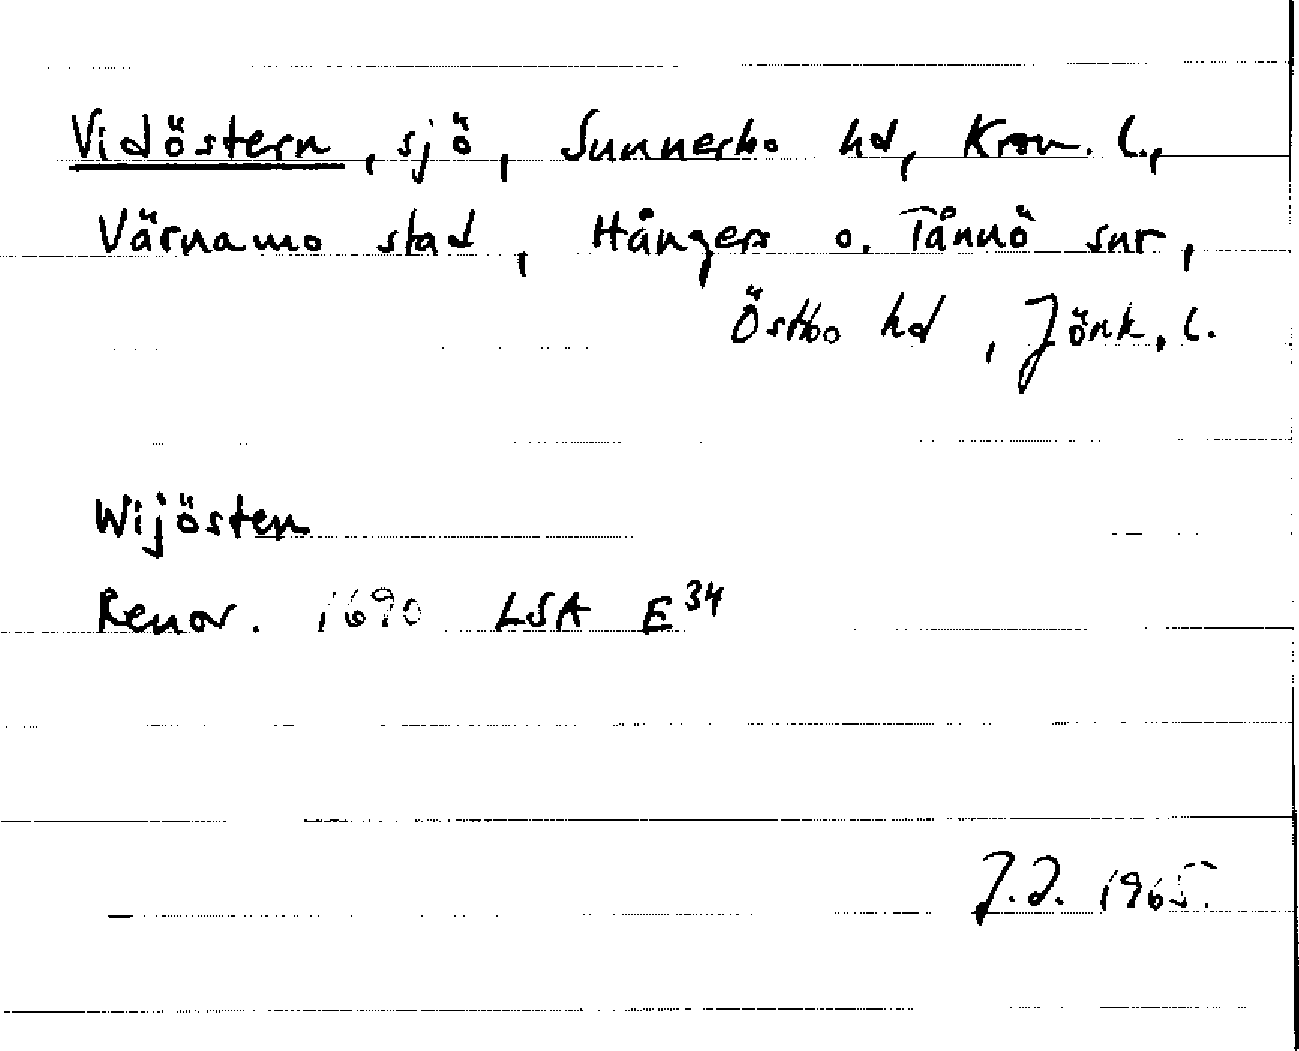 Vidöstern, sjö, Sunnerbo hd, Kron. l.,
Värnamo stad, Hångers o. Tånnö snr,
Östbo hd, Jönk. l.
Wijösten
Renov. 1690 LSA E34
J.J. 1965.